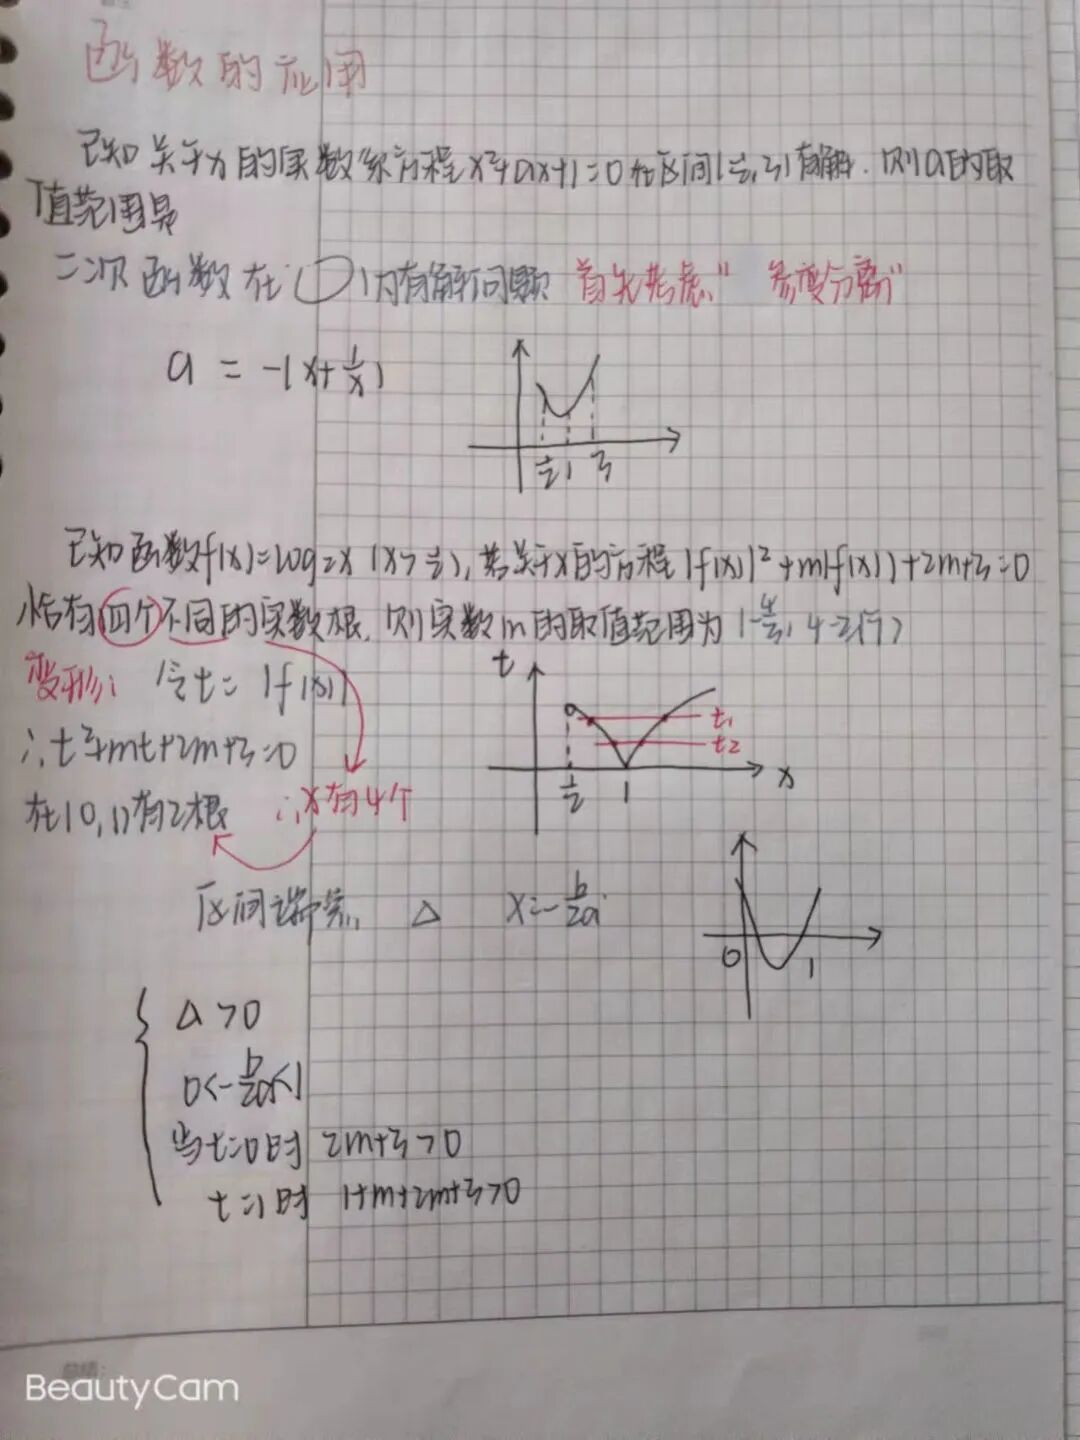 函数的应用
已知关于x的实数系方程x²+ax+1=0在区间(½,3)有解.则a的取
值范围是
二次函数在( )内有解问题 首先考虑"参变分离"
a = -(x+1/x)
½ 1 3
已知函数f(x)=log₂x(x>½),若关于x的方程|f(x)|²+m|f(x)|+2m+3=0
恰有四个不同的实数根,则实数m的取值范围为(-4/3,4-2√7)
变形: 令t=|f(x)|
t
t₁
t₂
∴t²+mt+2m+3=0
½ 1 x
在(0,1)有2根 ∴x有4个
区间端点 △ x=-b/2a
0 1
△>0
0<-b/2a<1
当t=0时 2m+3>0
t=1时 1+m+2m+3>0
BeautyCam